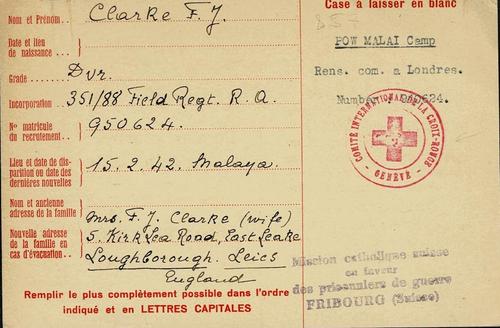 Nom et Prénom Clarke F. J.
Date et lieu
de naissance
Grade Dvr.
Incorporation 351/88 Field Regt. R. A.
No matricule
du recrutement 950624.
Lieu et date de dis-
parition ou date des
dernières nouvelles 15. 2. 42. Malaya.
Nom et ancienne
adresse de la famille
Mrs. F. J. Clarke (wife)
Nouvelle adresse
de la famille en
cas d'évacuation
5. Kirk Lea Road, East Leake
Loughborough. Leics
England
Remplir le plus complètement possible dans l'ordre
indiqué et en LETTRES CAPITALES
Case à laisser en blanc
POW MALAI Camp
Rens. com. a Londres.
Number 950624.
COMITÉ INTERNATIONAL DE LA CROIX-ROUGE
GENÈVE
Mission catholique suisse
en faveur
des prisonniers de guerre
FRIBOURG (Suisse)